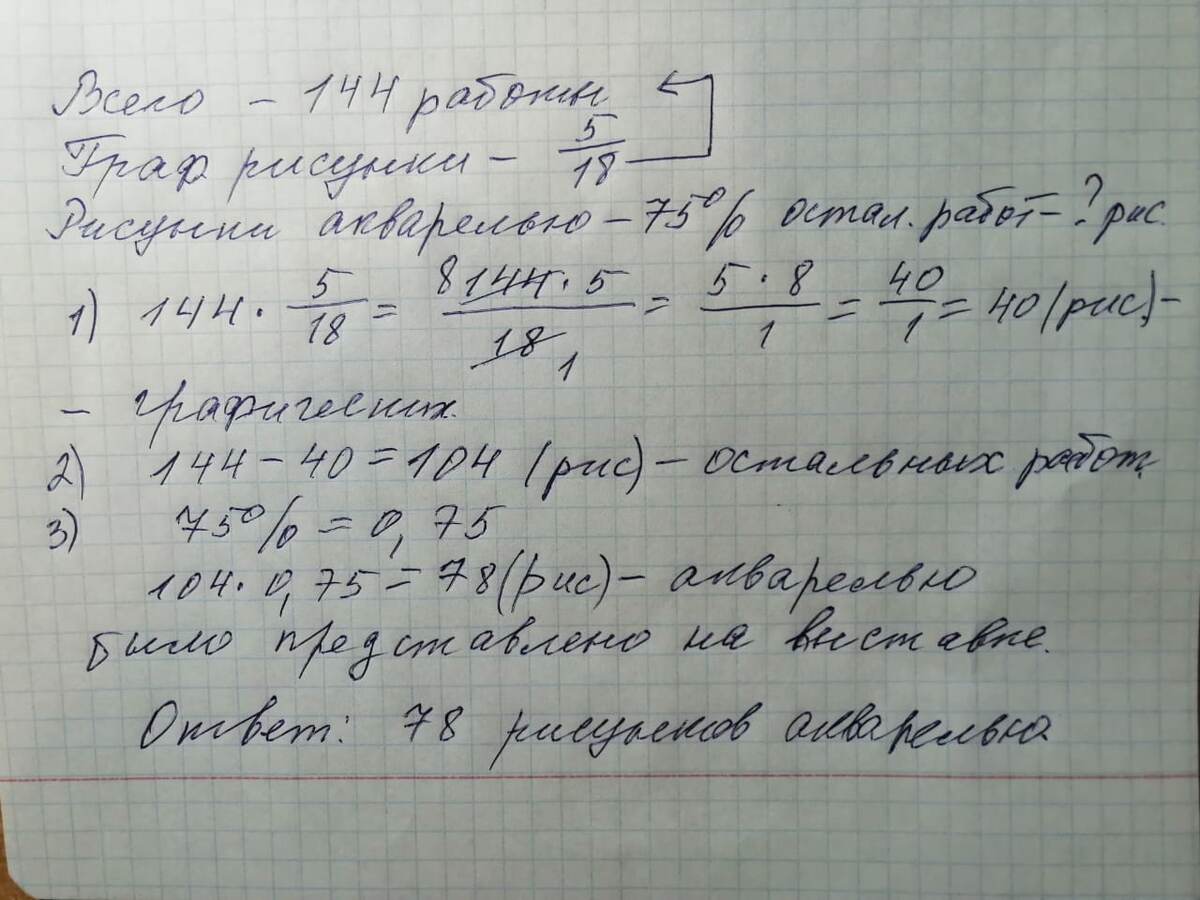 Всего - 144 работы
Граф рисунки - 5/18
Рисунки акварелью - 75% остал. работ - ? рис.
1) 144 · 5/18 = 8 144 · 5/18 1 = 5 · 8/1 = 40/1 = 40 (рис.) -
- графических.
2) 144 - 40 = 104 (рис) - остальных работ
3) 75% = 0,75
104 · 0,75 = 78 (рис) - акварелью
было представлено на выставке.
Ответ: 78 рисунков акварелью